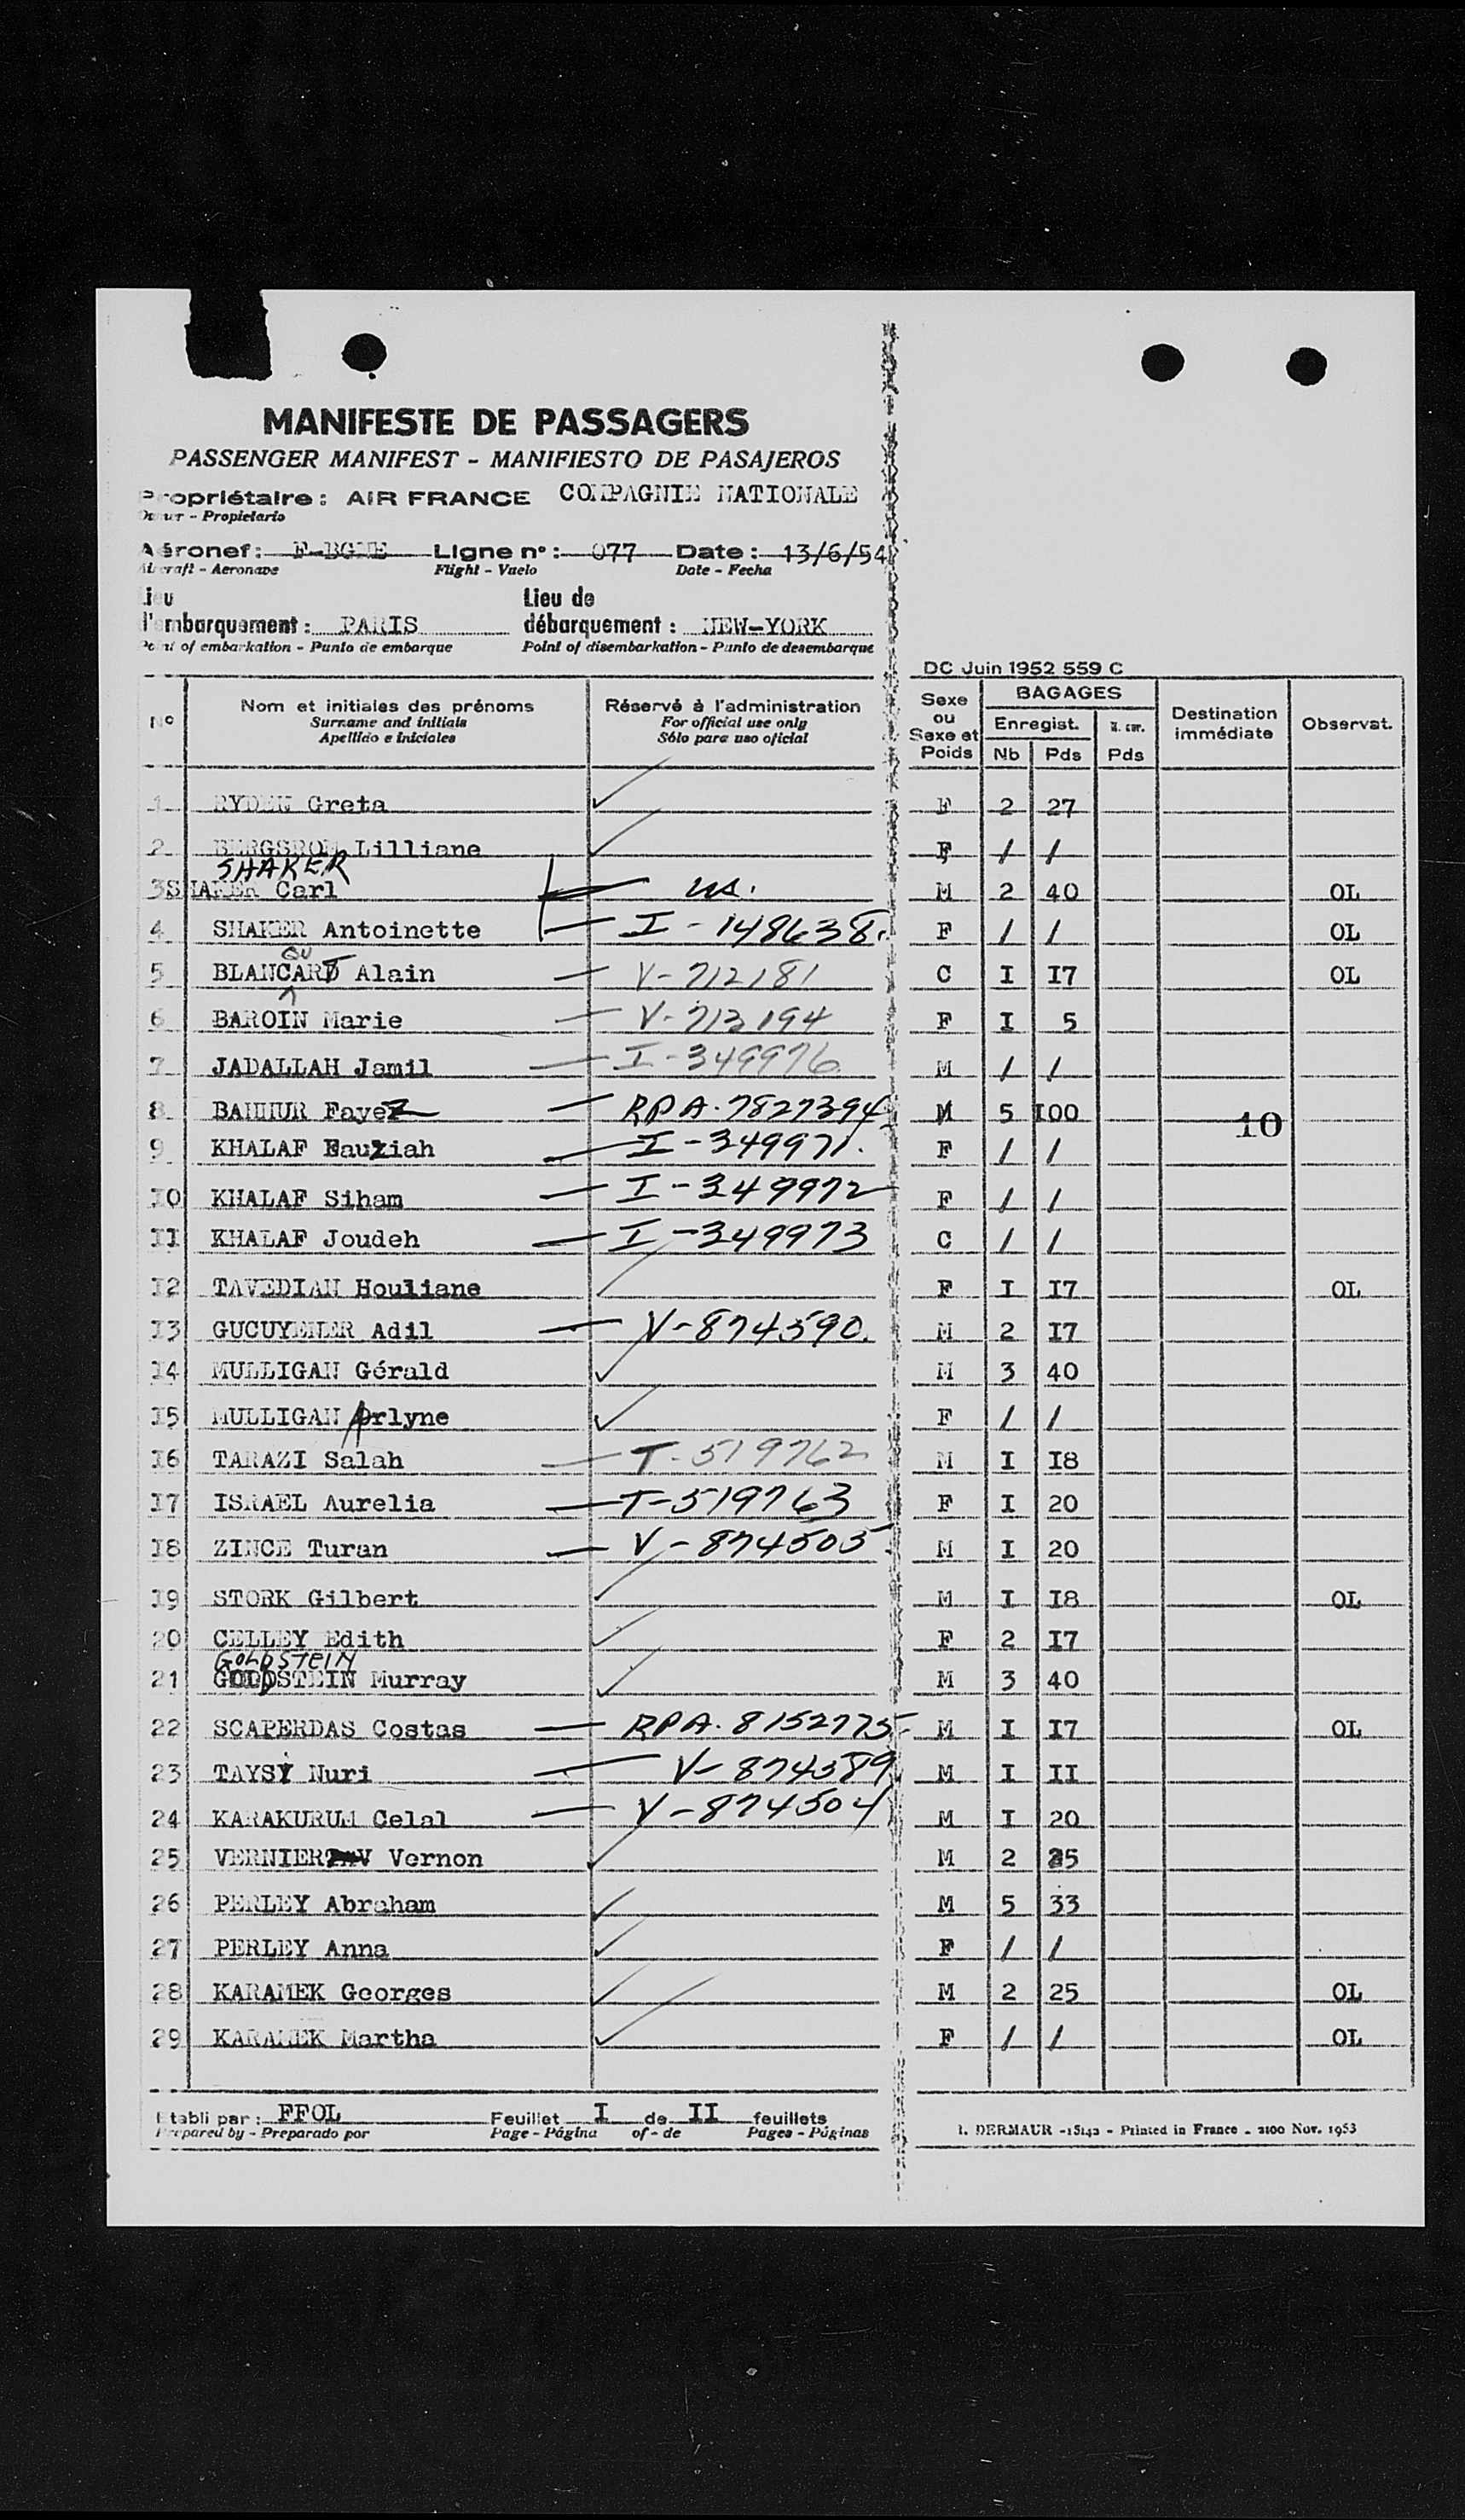 MANIFESTE DE PASSAGERS
PASSENGER MANIFEST - MANIFIESTO DE PASAJEROS
Propriétaire : AIR FRANCE COMPAGNIE NATIONALE
Owner - Propietario
Aéronef : Ligne n° : 077 Date : 13/6/54
Aircraft - Aeronave Flight - Vuelo Date - Fecha
Lieu Lieu de
d'embarquement : PARIS débarquement : NEW-YORK
Point of embarkation - Punto de embarque Point of disembarkation - Punto de desembarque
DC Juin 1952 559 C
N° Nom et initiales des prénoms Surname and initials Apellido e iniciales Réservé à l'administration For official use only Sólo para uso oficial Sexe ou Sexe et Poids BAGAGES Enregist. Nb Pds N. car. Pds Destination immédiate Observat.
1 RYDEN Greta ✓ F 2 27
2 Lilliane ✓ F / /
SHAKER
3 SHAKER Carl us. M 2 40 OL
4 SHAKER Antoinette — I-148638 F / / OL
OU
5 BLANCART Alain — V-712181 C I I7 OL
6 BAROIN Marie — V-713194 F I 5
7 JADALLAH Jamil — I-349976 M / /
8 Fayez — RPA-7827394 M 5 I00 10
9 KHALAF Fauziah — I-349971. F / /
I0 KHALAF Siham — I-349972 F / /
II KHALAF Joudeh — I-349973 C / /
I2 TAVEDIAN Houliane ✓ F I I7 OL
I3 Adil — V-874590. M 2 I7
I4 MULLIGAN Gérald ✓ M 3 40
I5 MULLIGAN Arlyne ✓ F / /
I6 TARAZI Salah — T-519762 M I I8
I7 ISRAEL Aurelia — T-519763 F I 20
I8 ZINCE Turan — V-874505 M I 20
I9 STORK Gilbert ✓ M I I8 OL
20 CELLEY Edith ✓ F 2 I7
GOLDSTEIN
21 GOLDSTEIN Murray ✓ M 3 40
22 SCAPERDAS Costas — RPA-8152775 M I I7 OL
23 TAYSI Nuri — V-874589 M I II
24 KARAKURUM Celal — V-874504 M I 20
25 VERNIER Vernon ✓ M 2 25
26 PERLEY Abraham ✓ M 5 33
27 PERLEY Anna ✓ F / /
28 KARAMEK Georges ✓ M 2 25 OL
29 KARAMEK Martha ✓ F / / OL
Etabli par : FFOL Feuillet I de II feuillets
Prepared by - Preparado por Page - Página of - de Pages - Páginas
I. DERMAUR -15142 - Printed in France - 2100 Nov. 1953